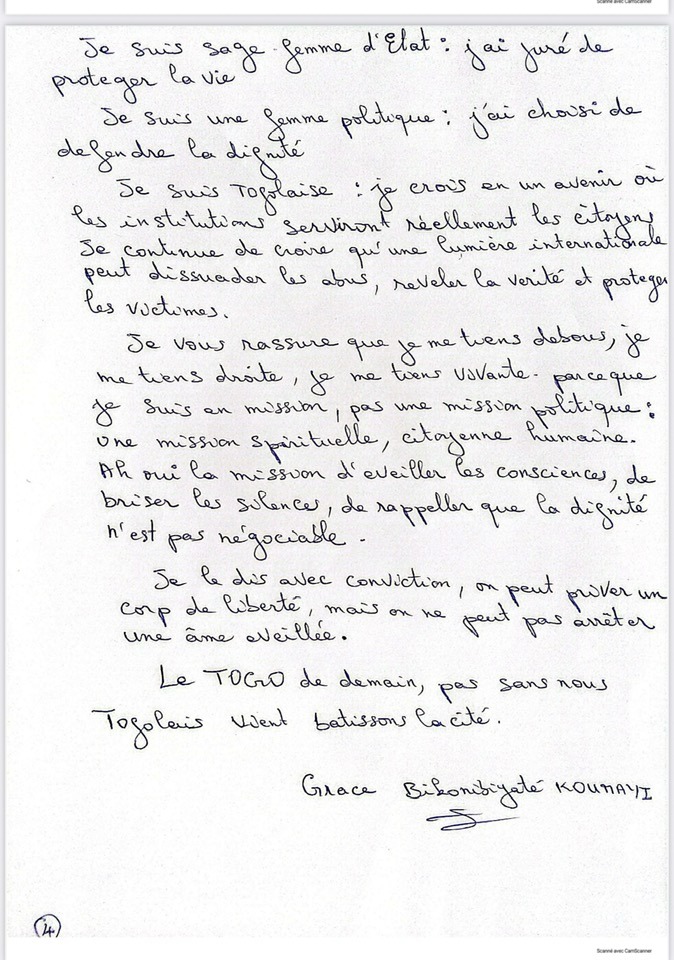 Scanné avec CamScanner
Je suis sage-femme d'Etat : j'ai juré de
proteger la vie
Je suis une femme politique : j'ai choisi de
defendre la dignité
Je suis Togolaise : je crois en un avenir où
les institutions serviront réellement les citoyens
Je continue de croire qu'une lumière internationale
peut dissuader les abus, reveler la verité et proteger
les victimes.
Je vous rassure que je me tiens debous, je
me tiens droite, je me tiens vivante. parceque
je suis en mission, pas une mission politique :
une mission spirituelle, citoyenne humaine.
Ah oui la mission d'eveiller les consciences, de
briser les silences, de rappeller que la dignité
n'est pas négociable.
Je le dis avec conviction, on peut priver un
corp de liberté, mais on ne peut pas arrêter
une âme eveillée.
Le TOGO de demain, pas sans nous
Togolais vient batissons la cité.
Grace KOUMAYI
4
Scanné avec CamScanner